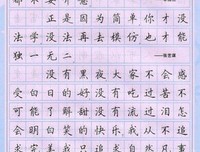 正是因为简单你才没
法学没法再去模仿也才能
独一无二
没有黑夜大家不会感
受白日的好没有吃过苦不
可能了解甜没有流过泪怎
会明白笑的快乐我从不追